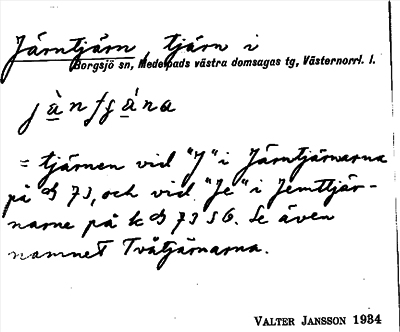 Järntjärn, tjärn i
Borgsjö sn, Medelpads västra domsagas tg, Västernorrl. l.
= tjärnen vid "J" i Järntjärnarna
på 73, och vid "Je" i Jemttjär-
narne på k 73 56. Se även
namnet Tvåtjärnarna.
VALTER JANSSON 1934